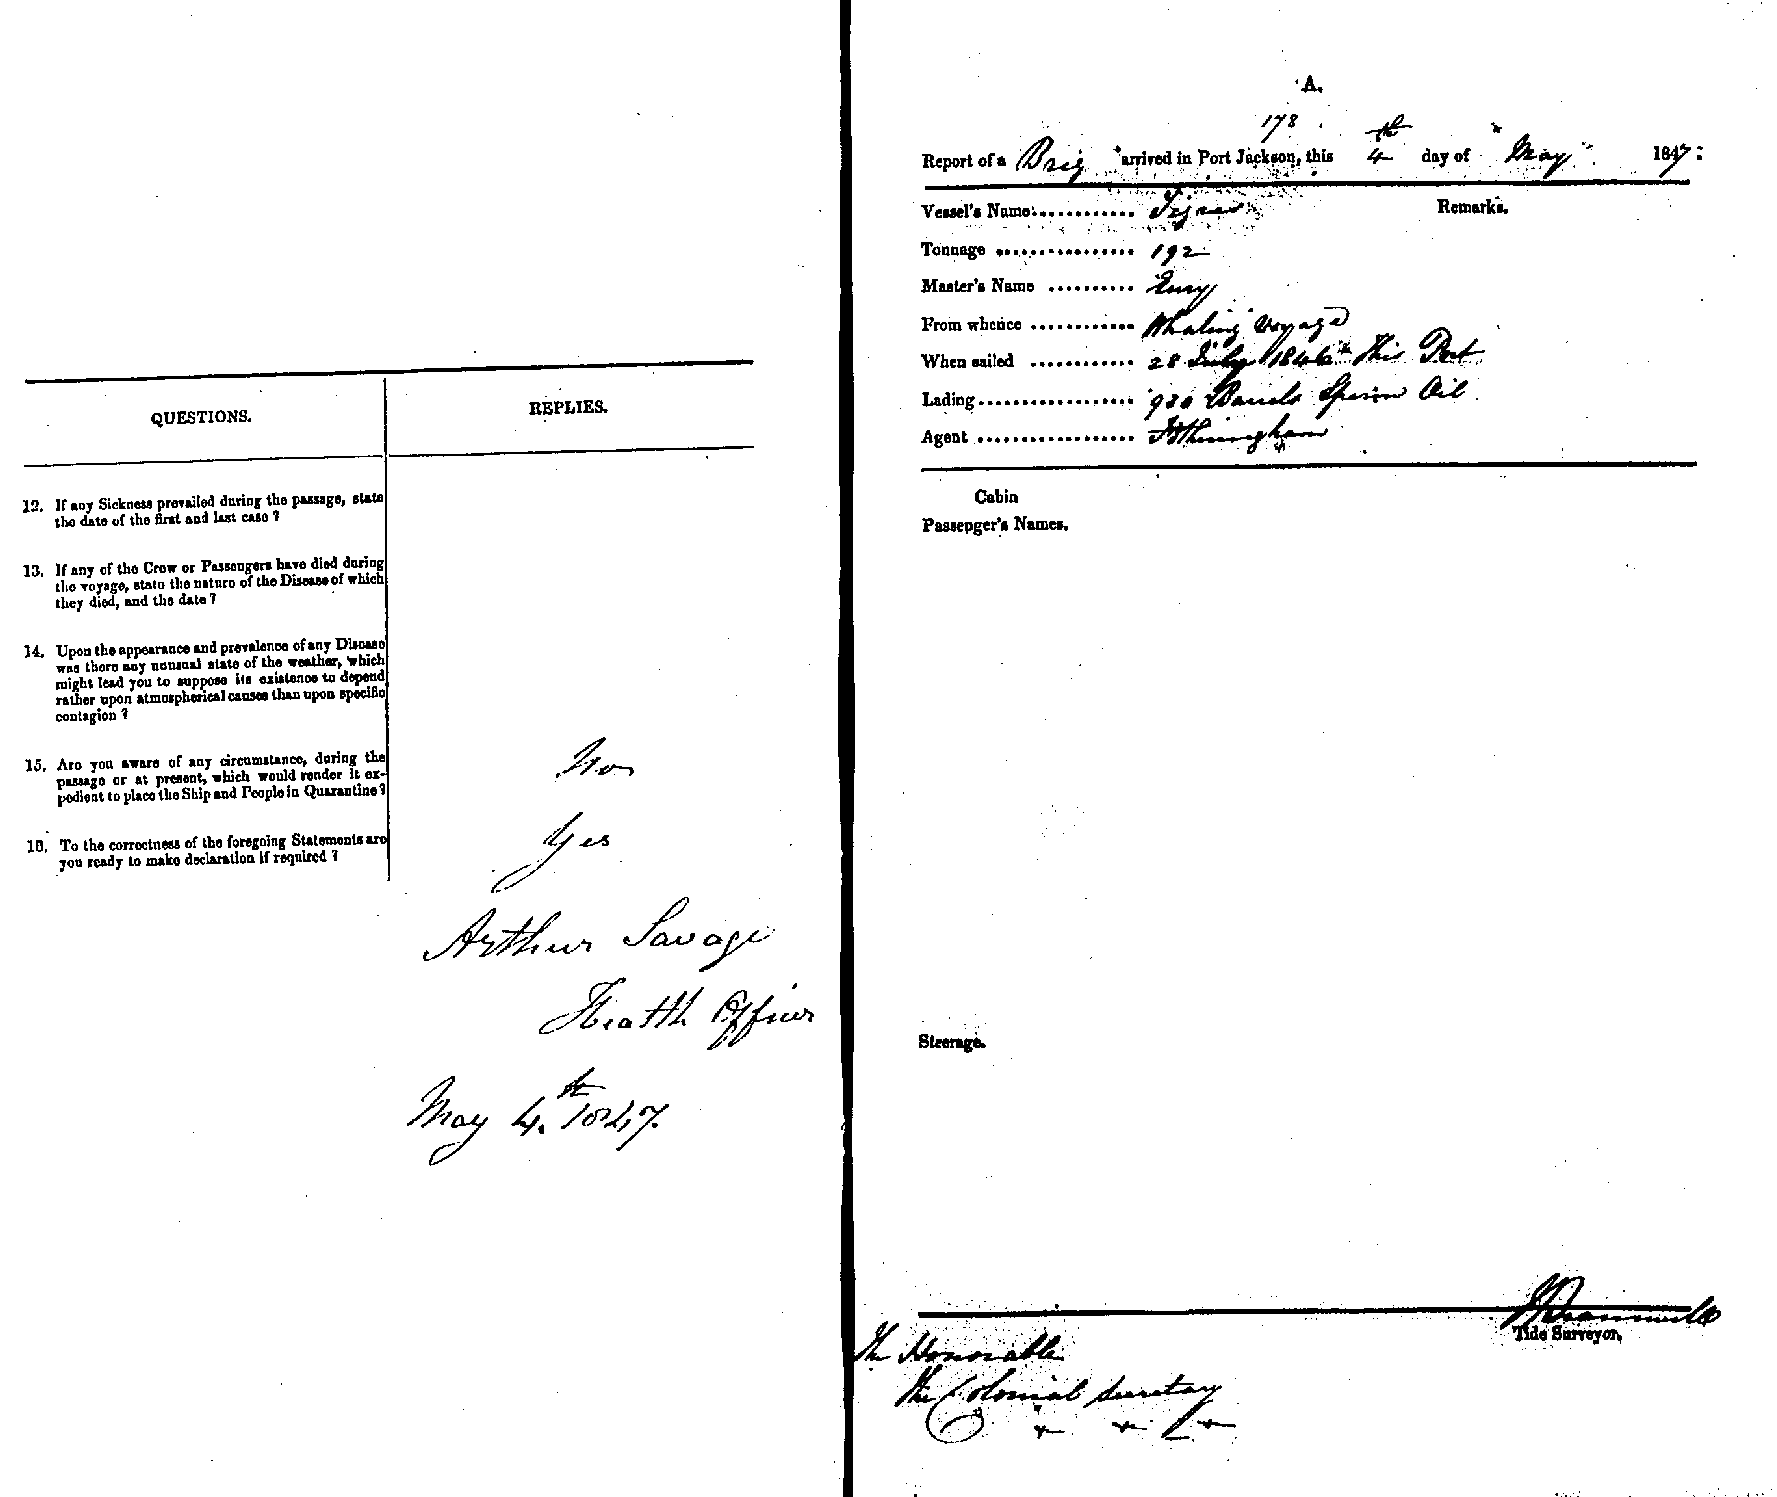 QUESTIONS.
REPLIES.
12. If any Sickness prevailed during the passage, state
the date of the first and last case ?
13. If any of the Crew or Passengers have died during
the voyage, state the nature of the Disease of which
they died, and the date ?
14. Upon the appearance and prevalence of any Disease
was there any unusual state of the weather, which
might lead you to suppose its existence to depend
rather upon atmospherical causes than upon specific
contagion ?
15. Are you aware of any circumstance, during the
passage or at present, which would render it ex-
pedient to place the Ship and People in Quarantine ?
No
16. To the correctness of the foregoing Statements are
you ready to make declaration if required ?
Yes
Arthur Savage
Health Officer
May 4th 1847.
A.
178
Report of a Brig arrived in Port Jackson, this 4th day of May 1847:
Vessel's Name
Remarks.
Tonnage 192
Master's Name
From whence Whaling Voyage
When sailed 28 July 1846 this Port
Lading Barrels Sperm Oil
Agent Fotheringham
Cabin
Passenger's Names.
Steerage.
Tide Surveyor.
The Honorable
The Colonial Secretary